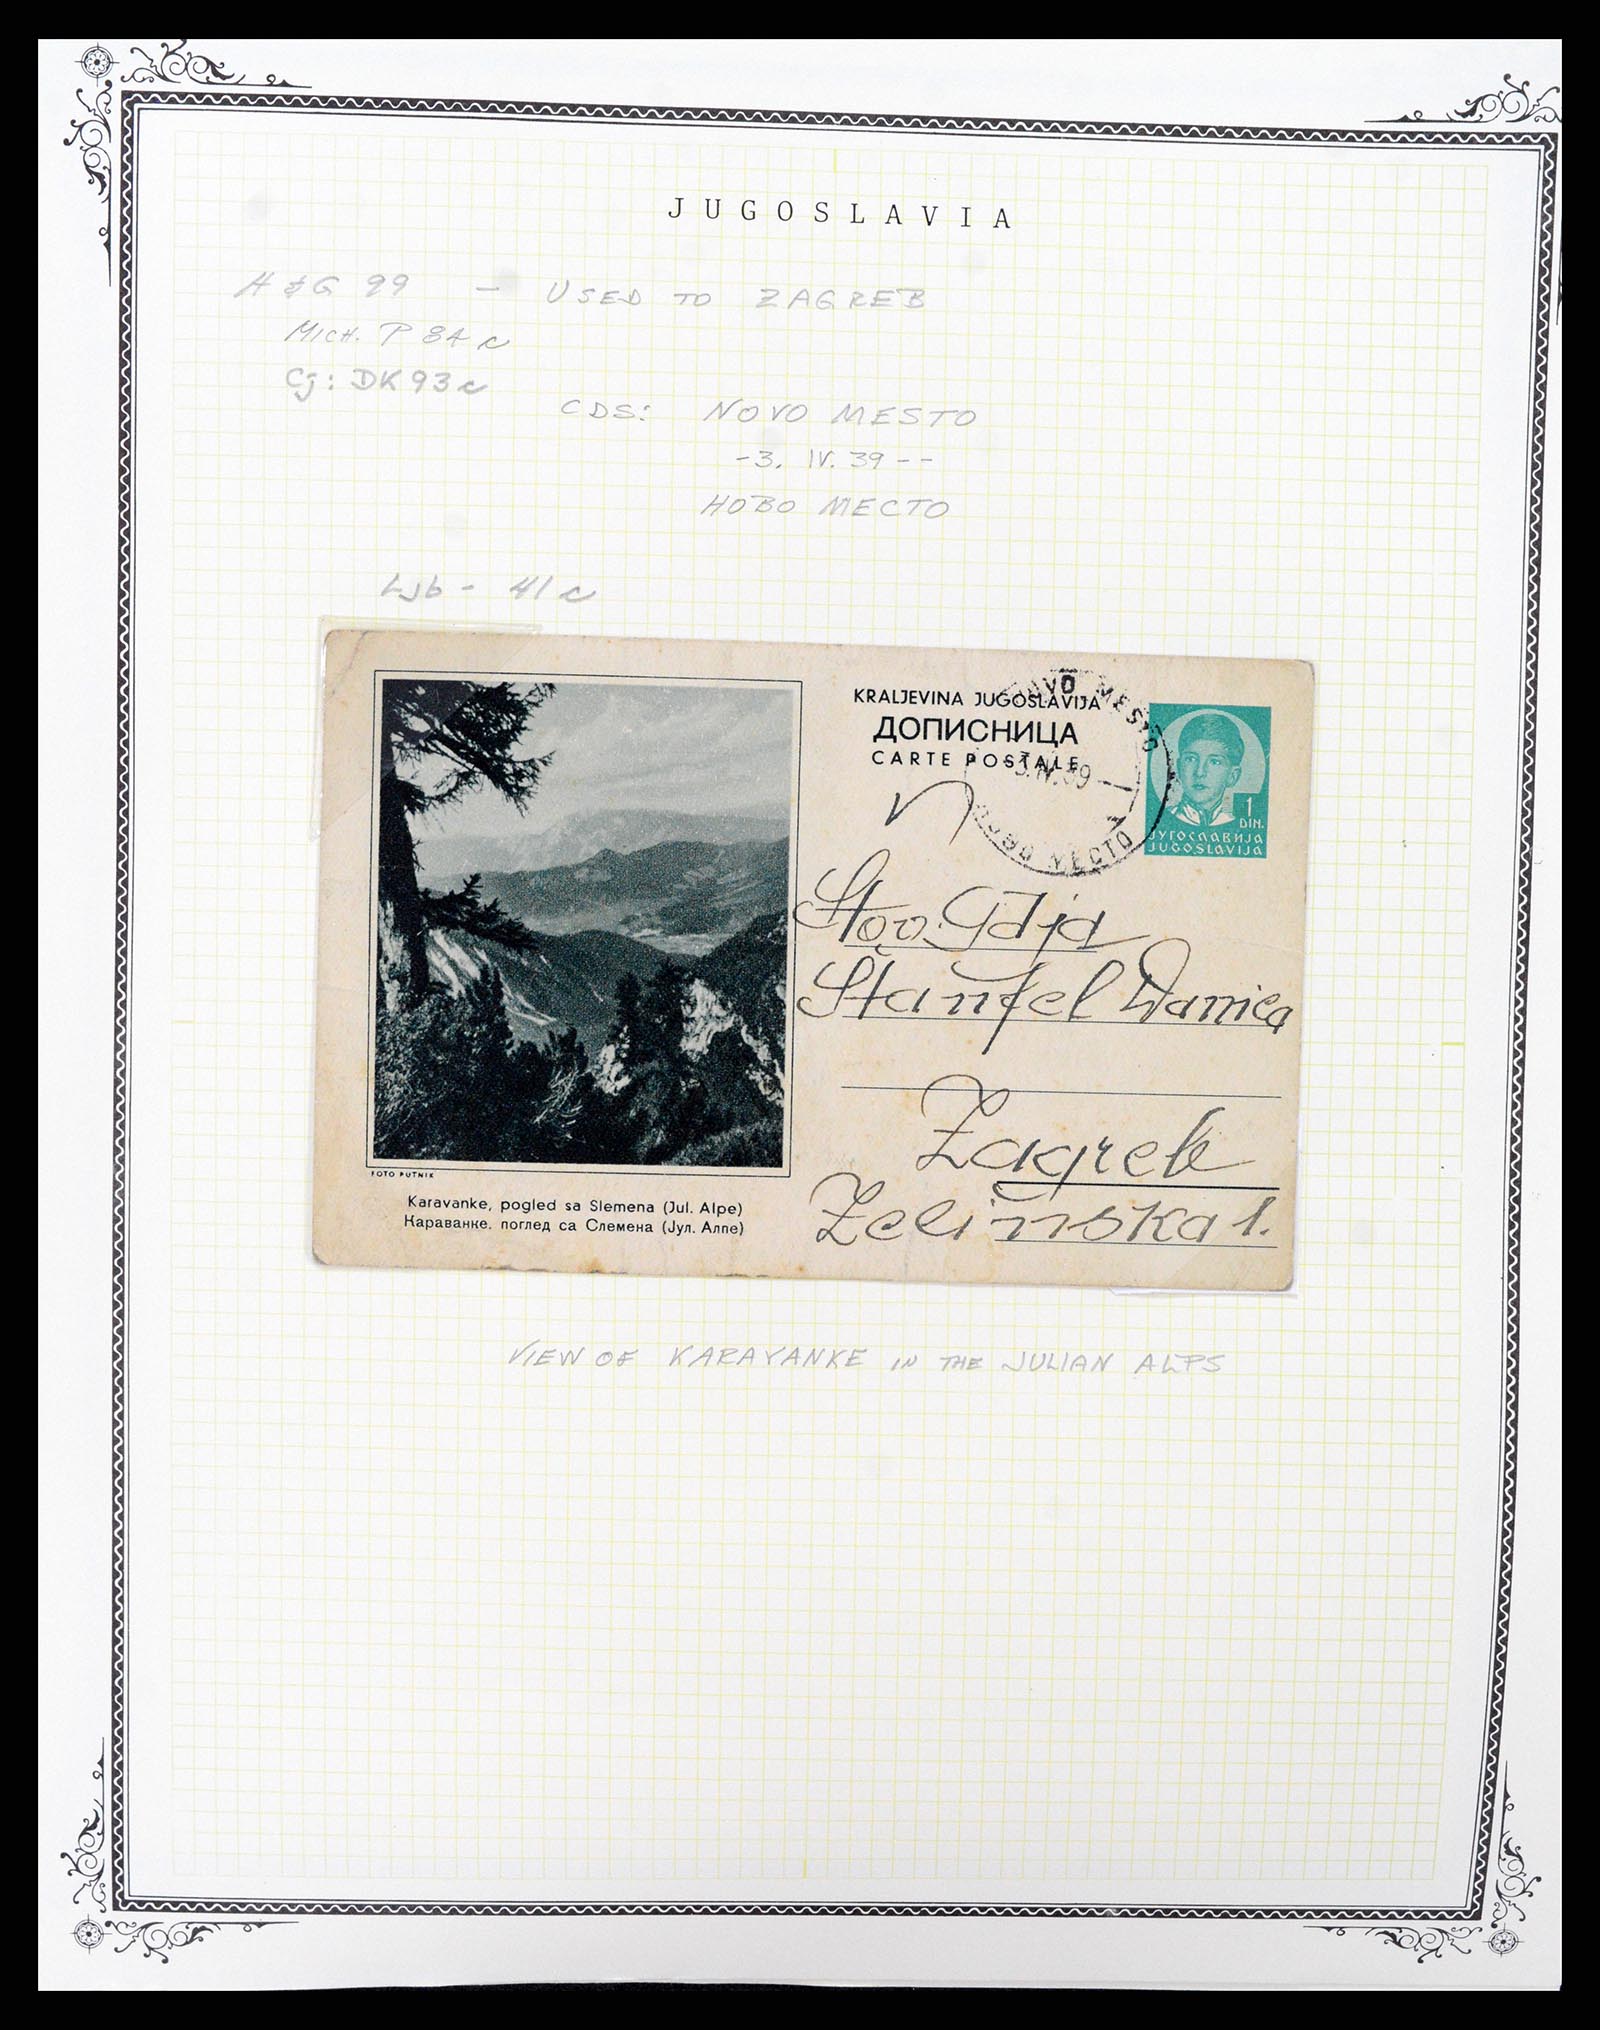 JUGOSLAVIA
H & G 99 - USED TO ZAGREB
MICH. P 84 c
Cj: DK 93 c
CDS: NOVO MESTO
-3. IV. 39--
НОВО МЕСТО
Ljb - 41 c
KRALJEVINA JUGOSLAVIJA
ДОПИСНИЦА
CARTE POSTALE
NOVO MESTO
3.IV.39
НОВО МЕСТО
1
DIN.
ЈУГОСЛАВИЈА
JUGOSLAVIJA
Štov. Gdja
Štanfel Danica
Zagreb
Zelinska 1.
FOTO PUTNIK
Karavanke, pogled sa Slemena (Jul. Alpe)
Караванке, поглед са Слемена (Јул. Алпе)
VIEW OF KARAVANKE IN THE JULIAN ALPS